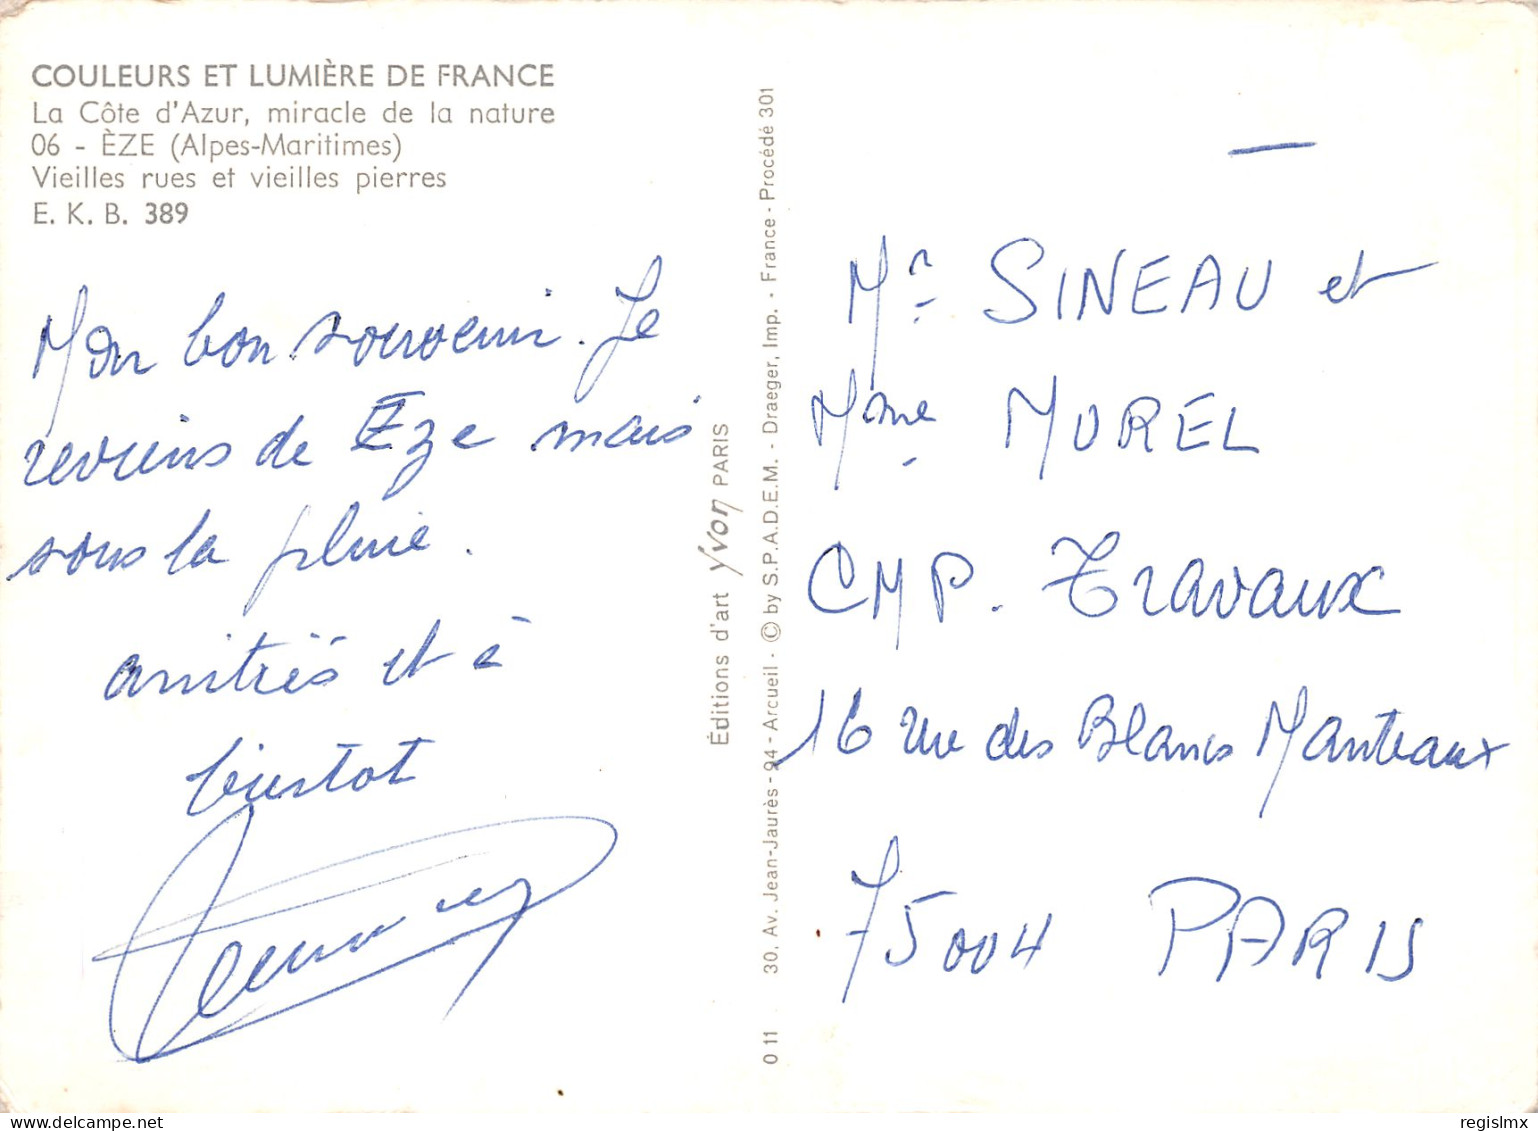 COULEURS ET LUMIÈRE DE FRANCE
La Côte d'Azur, miracle de la nature
06 - ÈZE (Alpes-Maritimes)
Vieilles rues et vieilles pierres
E. K. B. 389
Mon bon souvenir. Je
reviens de Eze mais
sous la pluie.
amitiés et à
bientot
Éditions d'art Yvon PARIS
30, Av. Jean-Jaurès - 94 - Arcueil - © by S.P.A.D.E.M. - Draeger, Imp. - France - Procédé 301
0 11
Mr SINEAU et
Mme MOREL
CMP. Travaux
16 rue des Blancs Manteaux
75004 PARIS
regislmx